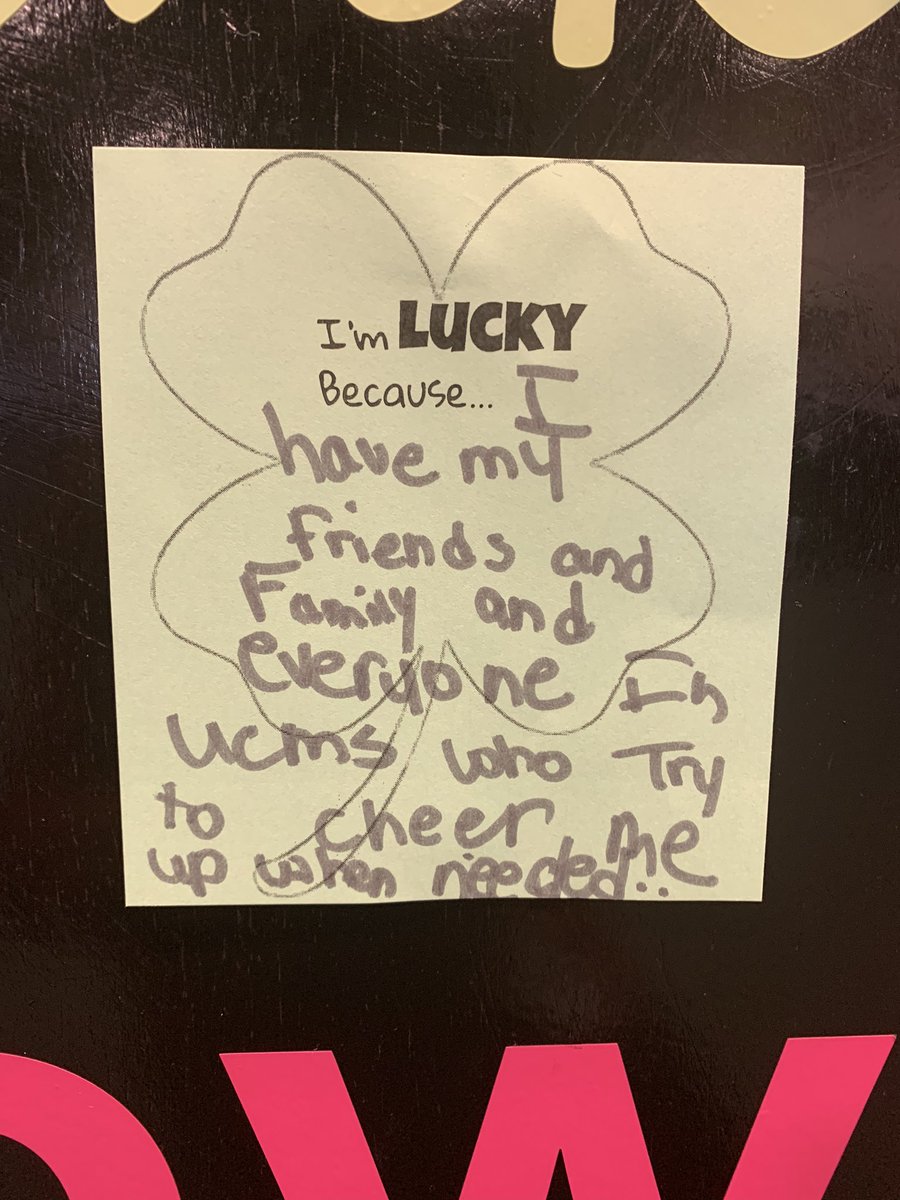 I'm LUCKY
Because... I
have my
friends and
Family and
everyone In
ucms who Try
to cheer me
up when needed..
OW